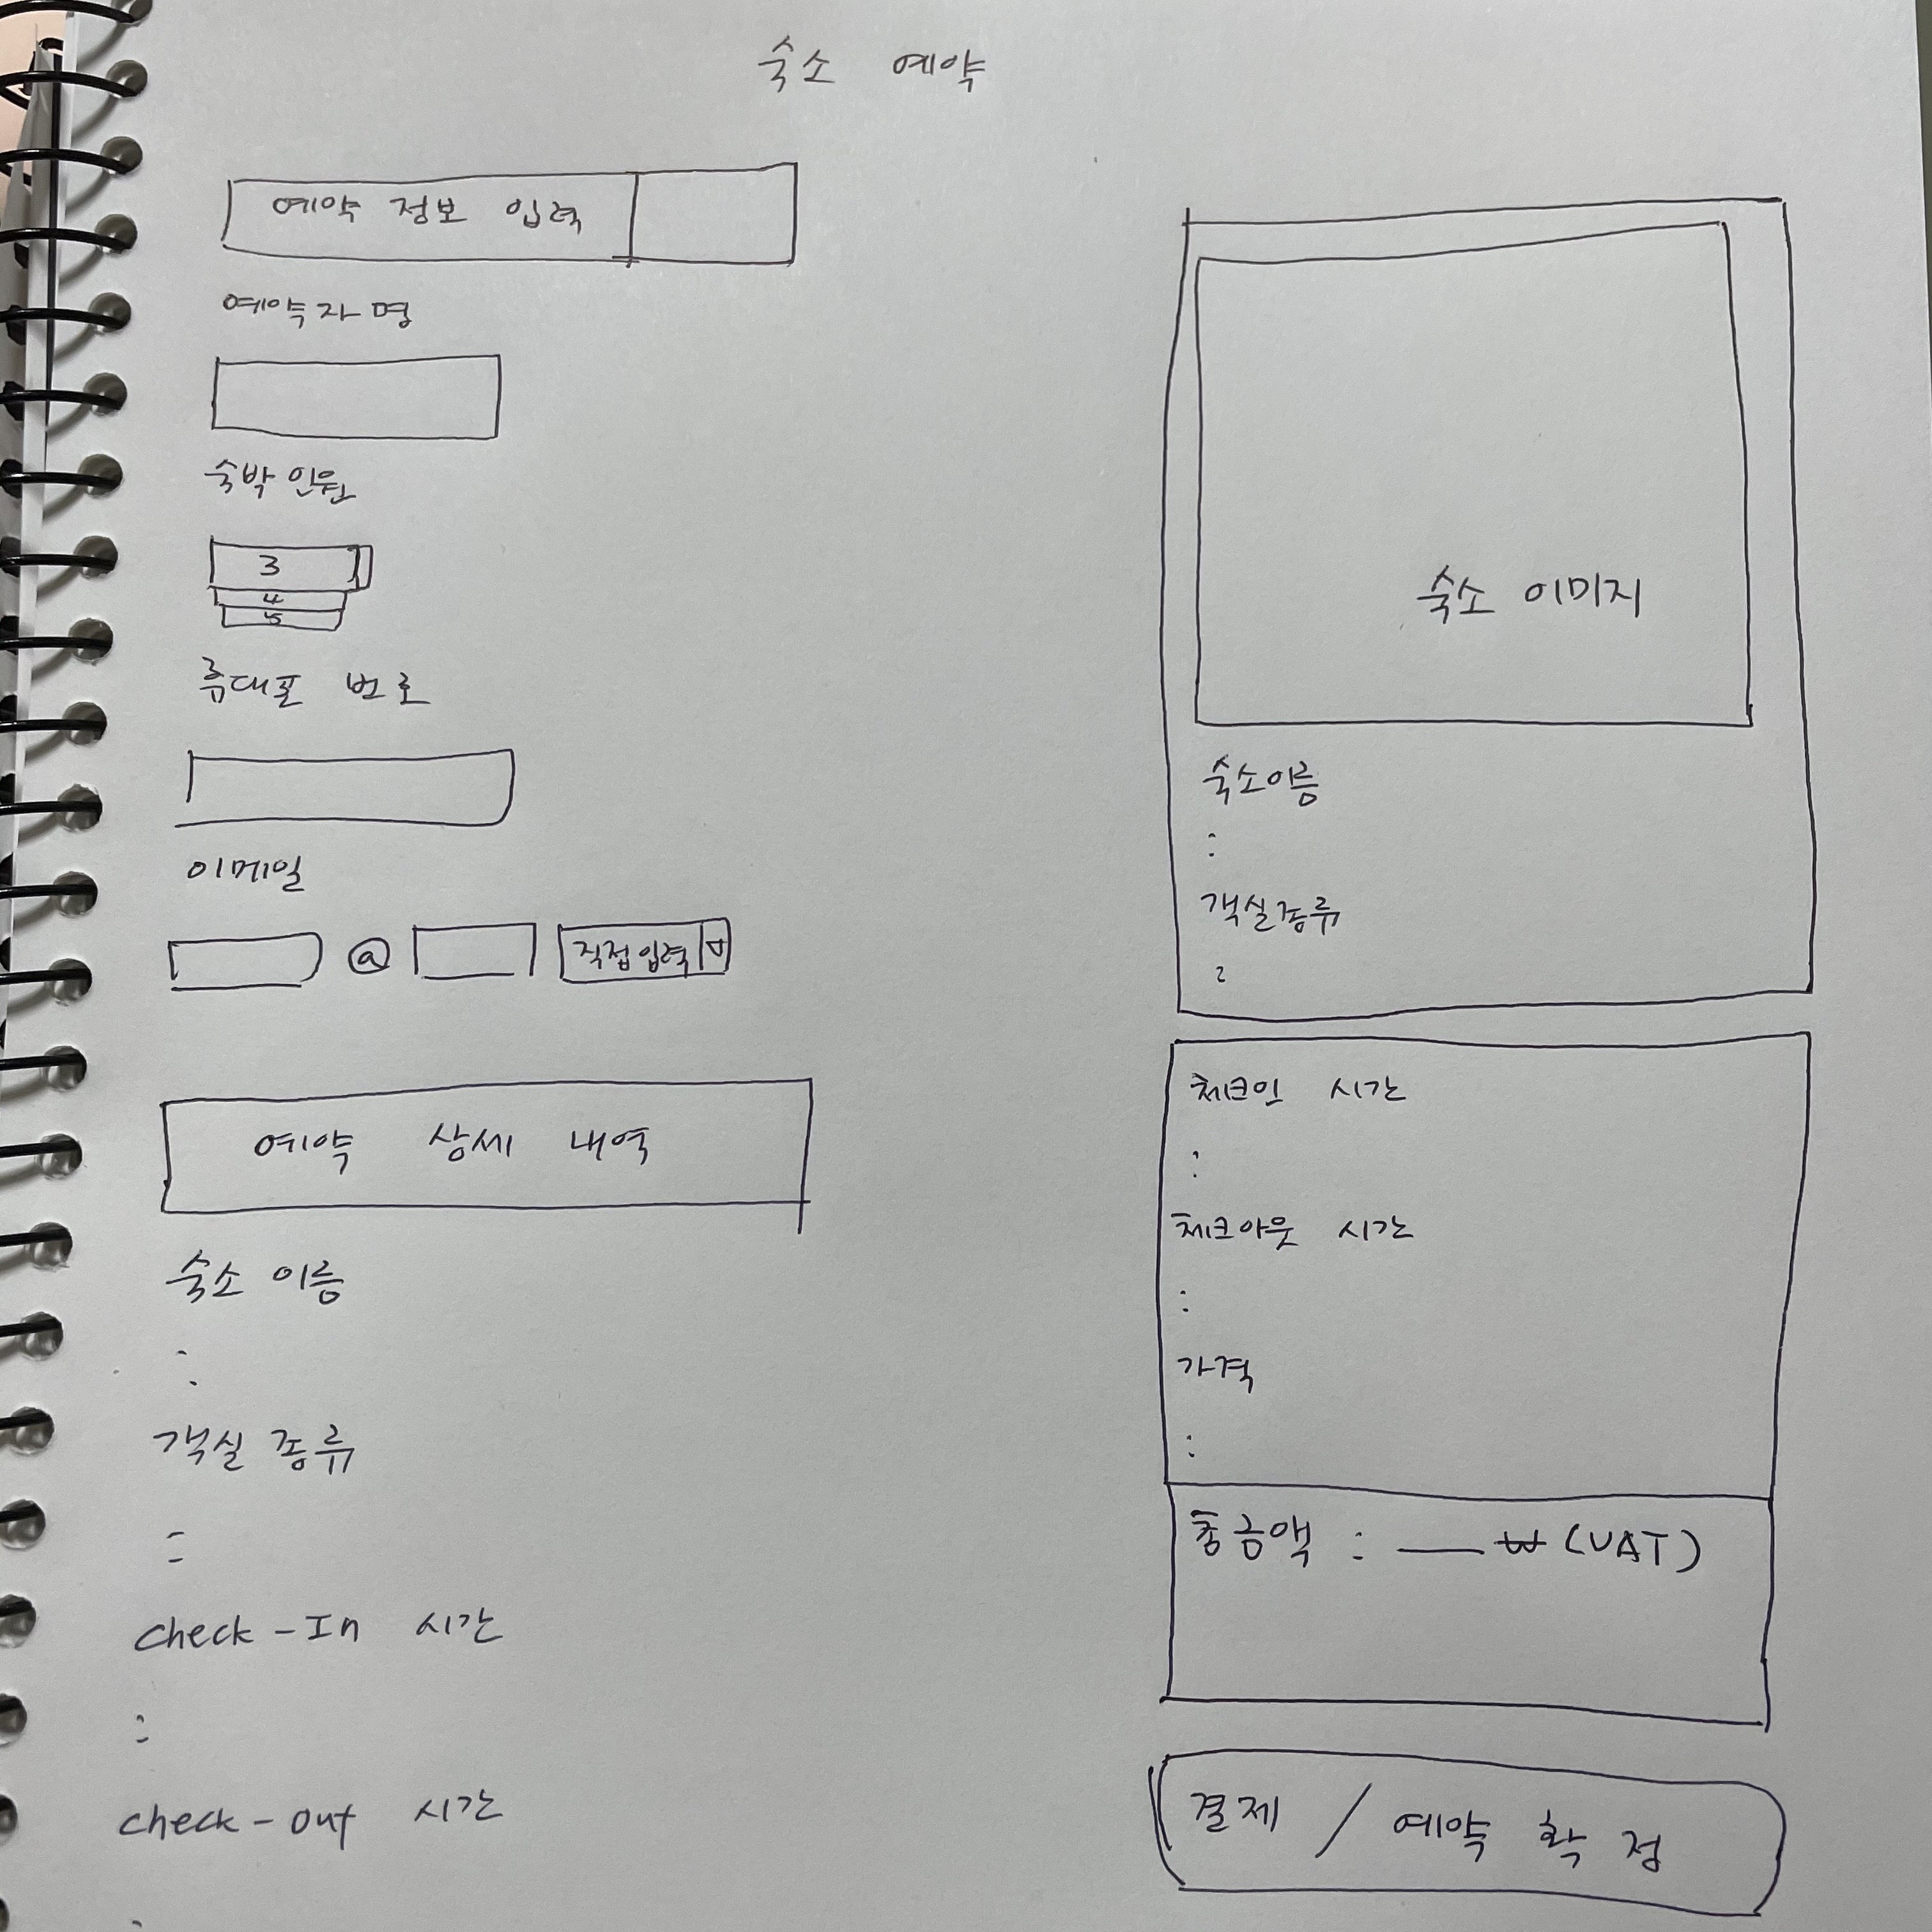 숙소 예약
예약 정보 입력
예약자명
숙박인원
3
4
5
휴대폰 번호
이메일
@ 직접입력
예약 상세 내역
숙소 이름
:
객실 종류
:
check-In 시간
:
check-out 시간
숙소 이미지
숙소이름
:
객실종류
:
체크인 시간
:
체크아웃 시간
:
가격
:
총금액 : ___ ₩ (VAT)
결제 / 예약 확정